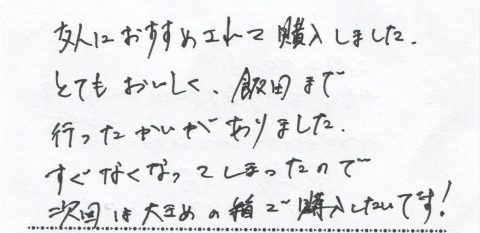 友人におすすめされて購入しました。
とてもおいしく、飯田まで
行ったかいがありました。
すぐなくなってしまったので
次回は大きめの箱で購入したいです!